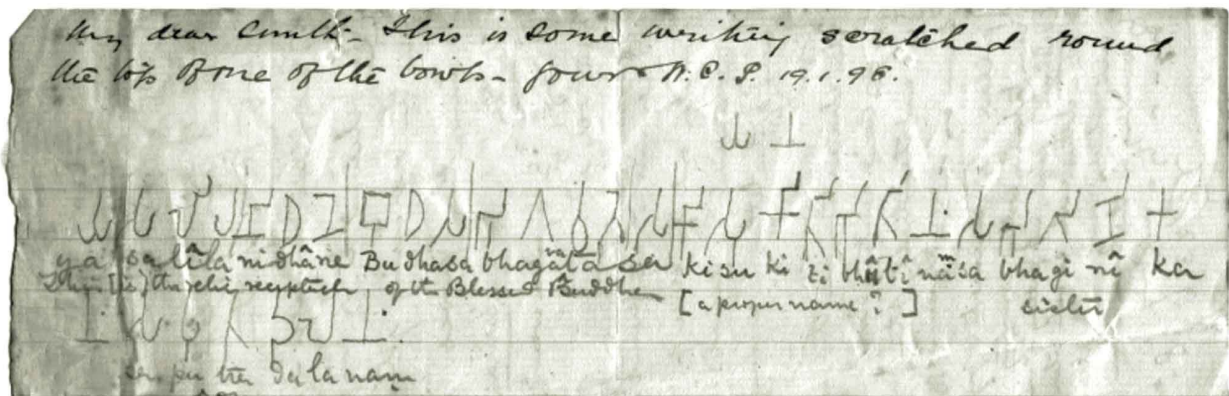 My dear Smith - This is some writing scratched round
the top of one of the bowls - yours W.C.P. 19.1.98.
𑀬 𑀦
𑀬 𑀲 𑀮𑀺 𑀮 𑀦𑀺 𑀥 𑀦𑁂 𑀩𑀼 𑀥 𑀲 𑀪 𑀕 𑀯 𑀢 𑀲 𑀓𑀺 𑀲𑀼 𑀓𑀺 𑀢𑀺 𑀪 𑀢𑀺 𑀦𑀁 𑀲 𑀪 𑀕𑀺 𑀦𑀺 𑀓
ya sa lîla nidhâne Budhasa bhagavata sa kisu ki ti bhâtî nâmsa bhagi nî ka
This [is] the relic receptacle of the Blessed Buddha [a proper name?] sister
𑀦𑀁 𑀲 𑀧𑀼 𑀢 𑀤 𑀮 𑀦𑀁
sa pu ta da la nam